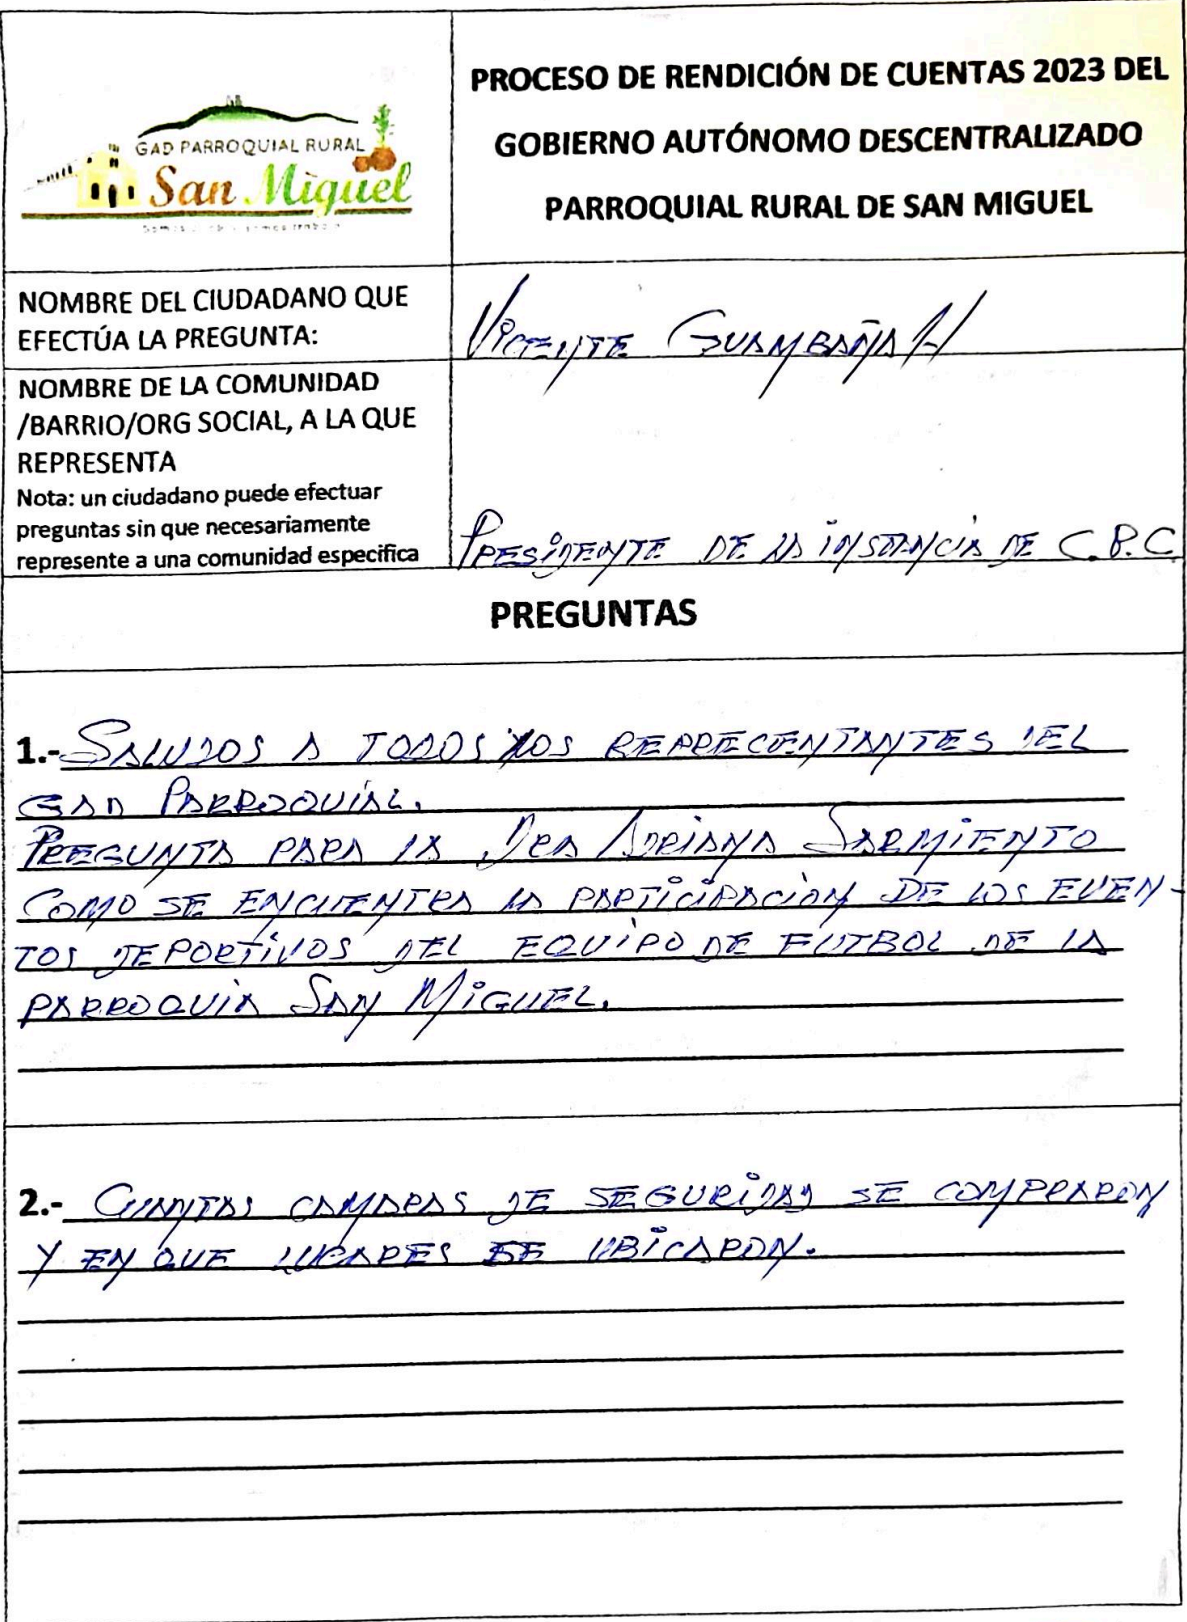 GAD PARROQUIAL RURAL
San Miguel
PROCESO DE RENDICIÓN DE CUENTAS 2023 DEL
GOBIERNO AUTÓNOMO DESCENTRALIZADO
PARROQUIAL RURAL DE SAN MIGUEL
NOMBRE DEL CIUDADANO QUE
EFECTÚA LA PREGUNTA:
VICENTE GUAMBAÑA H
NOMBRE DE LA COMUNIDAD
/BARRIO/ORG SOCIAL, A LA QUE
REPRESENTA
Nota: un ciudadano puede efectuar
preguntas sin que necesariamente
represente a una comunidad especifica
PRESIDENTE DE LA INSTANCIA DE C.P.C
PREGUNTAS
1.- SALUDOS A TODOS LOS REPRECENTANTES DEL
GAD PARROQUIAL.
PREGUNTA PARA LA DRA ADRIANA SARMIENTO
COMO SE ENCUENTRA LA PARTICIPACIÓN DE LOS EVEN-
TOS DEPORTIVOS DEL EQUIPO DE FUTBOL DE LA
PARROQUIA SAN MIGUEL.
2.- CUANTAS CAMARAS DE SEGURIDAD SE COMPRARON
Y EN QUE LUGARES SE UBICARON.